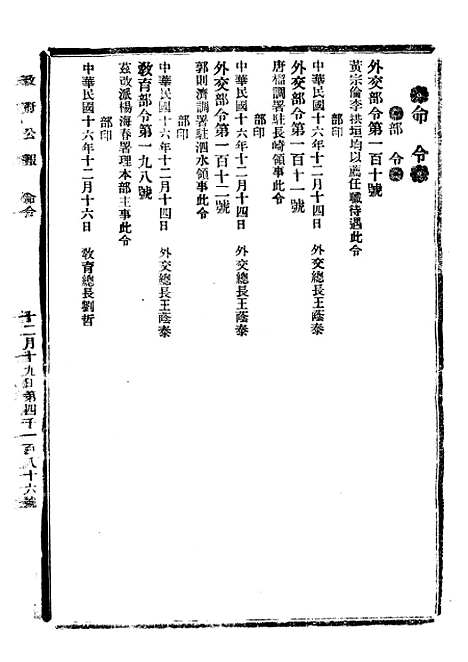 命令
部令
外交部令第一百十號
黃宗倫李拱垣均以薦任職待遇此令
部印
中華民國十六年十二月十四日 外交總長王蔭泰
外交部令第一百十一號
唐榴調署駐長崎領事此令
部印
中華民國十六年十二月十四日 外交總長王蔭泰
外交部令第一百十二號
郭則濟調署駐泗水領事此令
部印
中華民國十六年十二月十四日 外交總長王蔭泰
教育部令第一九八號
茲改派楊海春署理本部主事此令
部印
中華民國十六年十二月十六日 教育總長劉哲
政府公報 命令
十二月十九日第四千一百八十六號